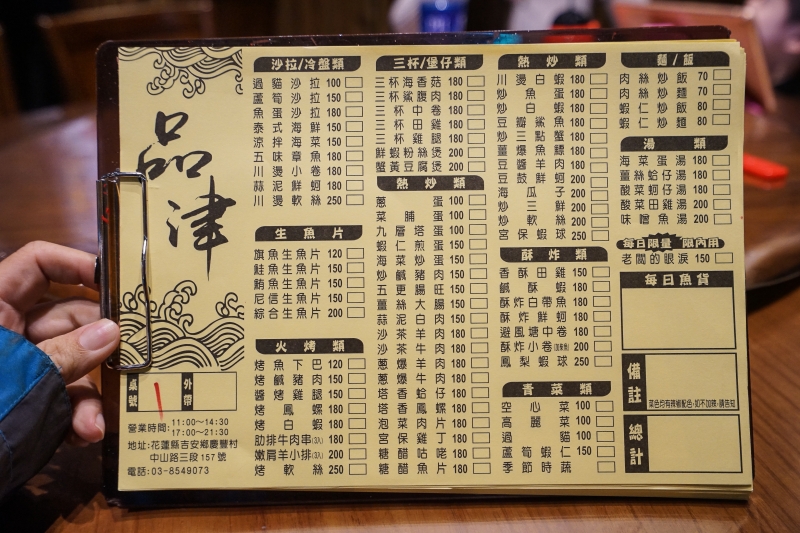 品津
桌號
外帶
營業時間:11:00~14:30
17:00~21:30
地址:花蓮縣吉安鄉慶豐村
中山路三段157號
電話:03-8549073
沙拉/冷盤類
過貓沙拉 100
蘆筍沙拉 150
魚蛋沙拉 150
泰式海鮮 150
涼拌海菜 150
五味章魚 180
川燙小卷 180
蒜泥鮮蚵 180
川燙軟絲 250
生魚片
旗魚生魚片 120
鮭魚生魚片 150
鮪魚生魚片 150
尼信生魚片 150
綜合生魚片 200
火烤類
烤魚下巴 120
烤鹹豬肉 150
醬烤雞腿 150
烤鳳螺 180
烤白蝦 180
肋排牛肉串(3入) 180
嫩肩羊小排(3入) 200
烤軟絲 250
三杯/堡仔類
三杯海香菇 180
三杯鯊腹肉 180
三杯中卷 180
三杯田雞 180
三杯雞腿 180
鮮蝦粉絲煲 200
蟹黃豆腐煲 200
熱炒類
蔥蛋 100
菜脯蛋 100
九層塔蛋 100
蝦仁煎蛋 150
海菜炒蛋 150
炒鹹豬肉 150
五更腸旺 150
薑絲大腸 150
蒜泥白肉 150
沙茶羊肉 180
沙茶牛肉 180
蔥爆羊肉 180
蔥爆牛肉 180
塔香蛤仔 180
塔香鳳螺 180
泡菜肉片 180
宮保雞丁 180
糖醋咕咾 180
糖醋魚片 180
熱炒類
川燙白蝦 180
炒魚蛋 180
炒白蝦 180
豆瓣鯊魚 180
炒三點蟹 180
薑爆魚鰾 180
豆醬羊肉 180
豆鼓鮮蚵 200
海瓜子 200
炒三鮮 200
炒軟絲 200
宮保蝦球 250
酥炸類
香酥田雞 150
鹹酥蝦 180
酥炸白帶魚 180
酥炸鮮蚵 180
避風塘中卷 180
酥炸小卷 200
鳳梨蝦球 250
青菜類
空心菜 100
高麗菜 100
過貓 100
蘆筍蝦仁 150
季節時蔬
麵/飯
肉絲炒飯 70
肉絲炒麵 70
蝦仁炒飯 80
蝦仁炒麵 80
湯類
海菜蛋湯 150
薑絲蛤仔湯 150
酸菜蚵仔湯 150
酸菜田雞湯 200
味噌魚湯 200
每日限量 限內用
老闆的眼淚 150
每日魚貨
備註
菜色均有辣椒配色,如不加辣,請告知
總計